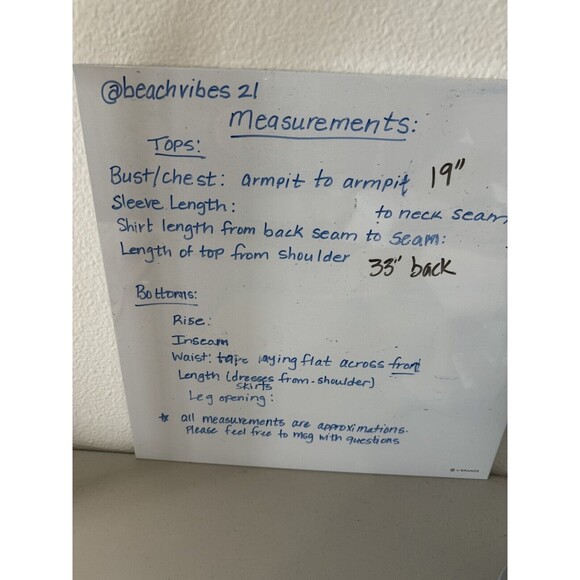 @beachvibes 21
Measurements:
Tops:
Bust/chest: armpit to armpit 19"
Sleeve Length: to neck seam
Shirt length from back seam to seam:
Length of top from shoulder 33" back
Bottoms:
Rise:
Inseam
Waist: tape laying flat across front
Length (dresses from shoulder)
skirts
Leg opening:
* all measurements are approximations.
Please feel free to msg with questions